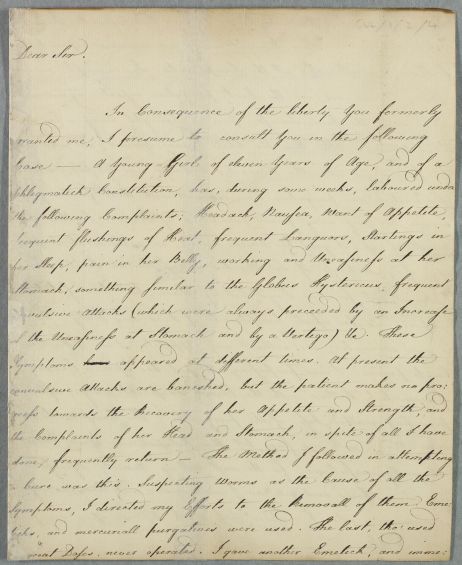 Dear Sir.
In Consequence of the liberty You formerly
granted me, I presume to consult You in the following
Case — A Young Girl of eleven Years of Age, and of a
phlegmatick Constitution, has, during some weeks, laboured unde
the following Complaints; Headach, Nausea, Want of Appetite,
frequent flushings of Heat, frequent Languors, Startings in
her Sleep, pain in her Belly, working and Uneasiness at her
Stomach, something similar to the Globus Hystericus, frequent
vulsive Attacks (which were always preceeded by an Increase
of the Uneasiness at Stomach and by a Vertego) &c. These
Symptoms appeared at different times. At present the
convulsive Attacks are banished, but the patient makes no pro:
gress towards the Recovery of her Appetite and Strength, and
the Complaints of her Head and Stomach, in spite of all I have
done, frequently return — The Method I followed in attempting
a Cure was this. Suspecting Worms as the Cause of all the
Symptoms, I directed my Efforts to the Removall of them Eme
ticks, and mercuriall purgatives were used. The last, tho' used
great Doses, never operated. I gave another Emetick, and imme: